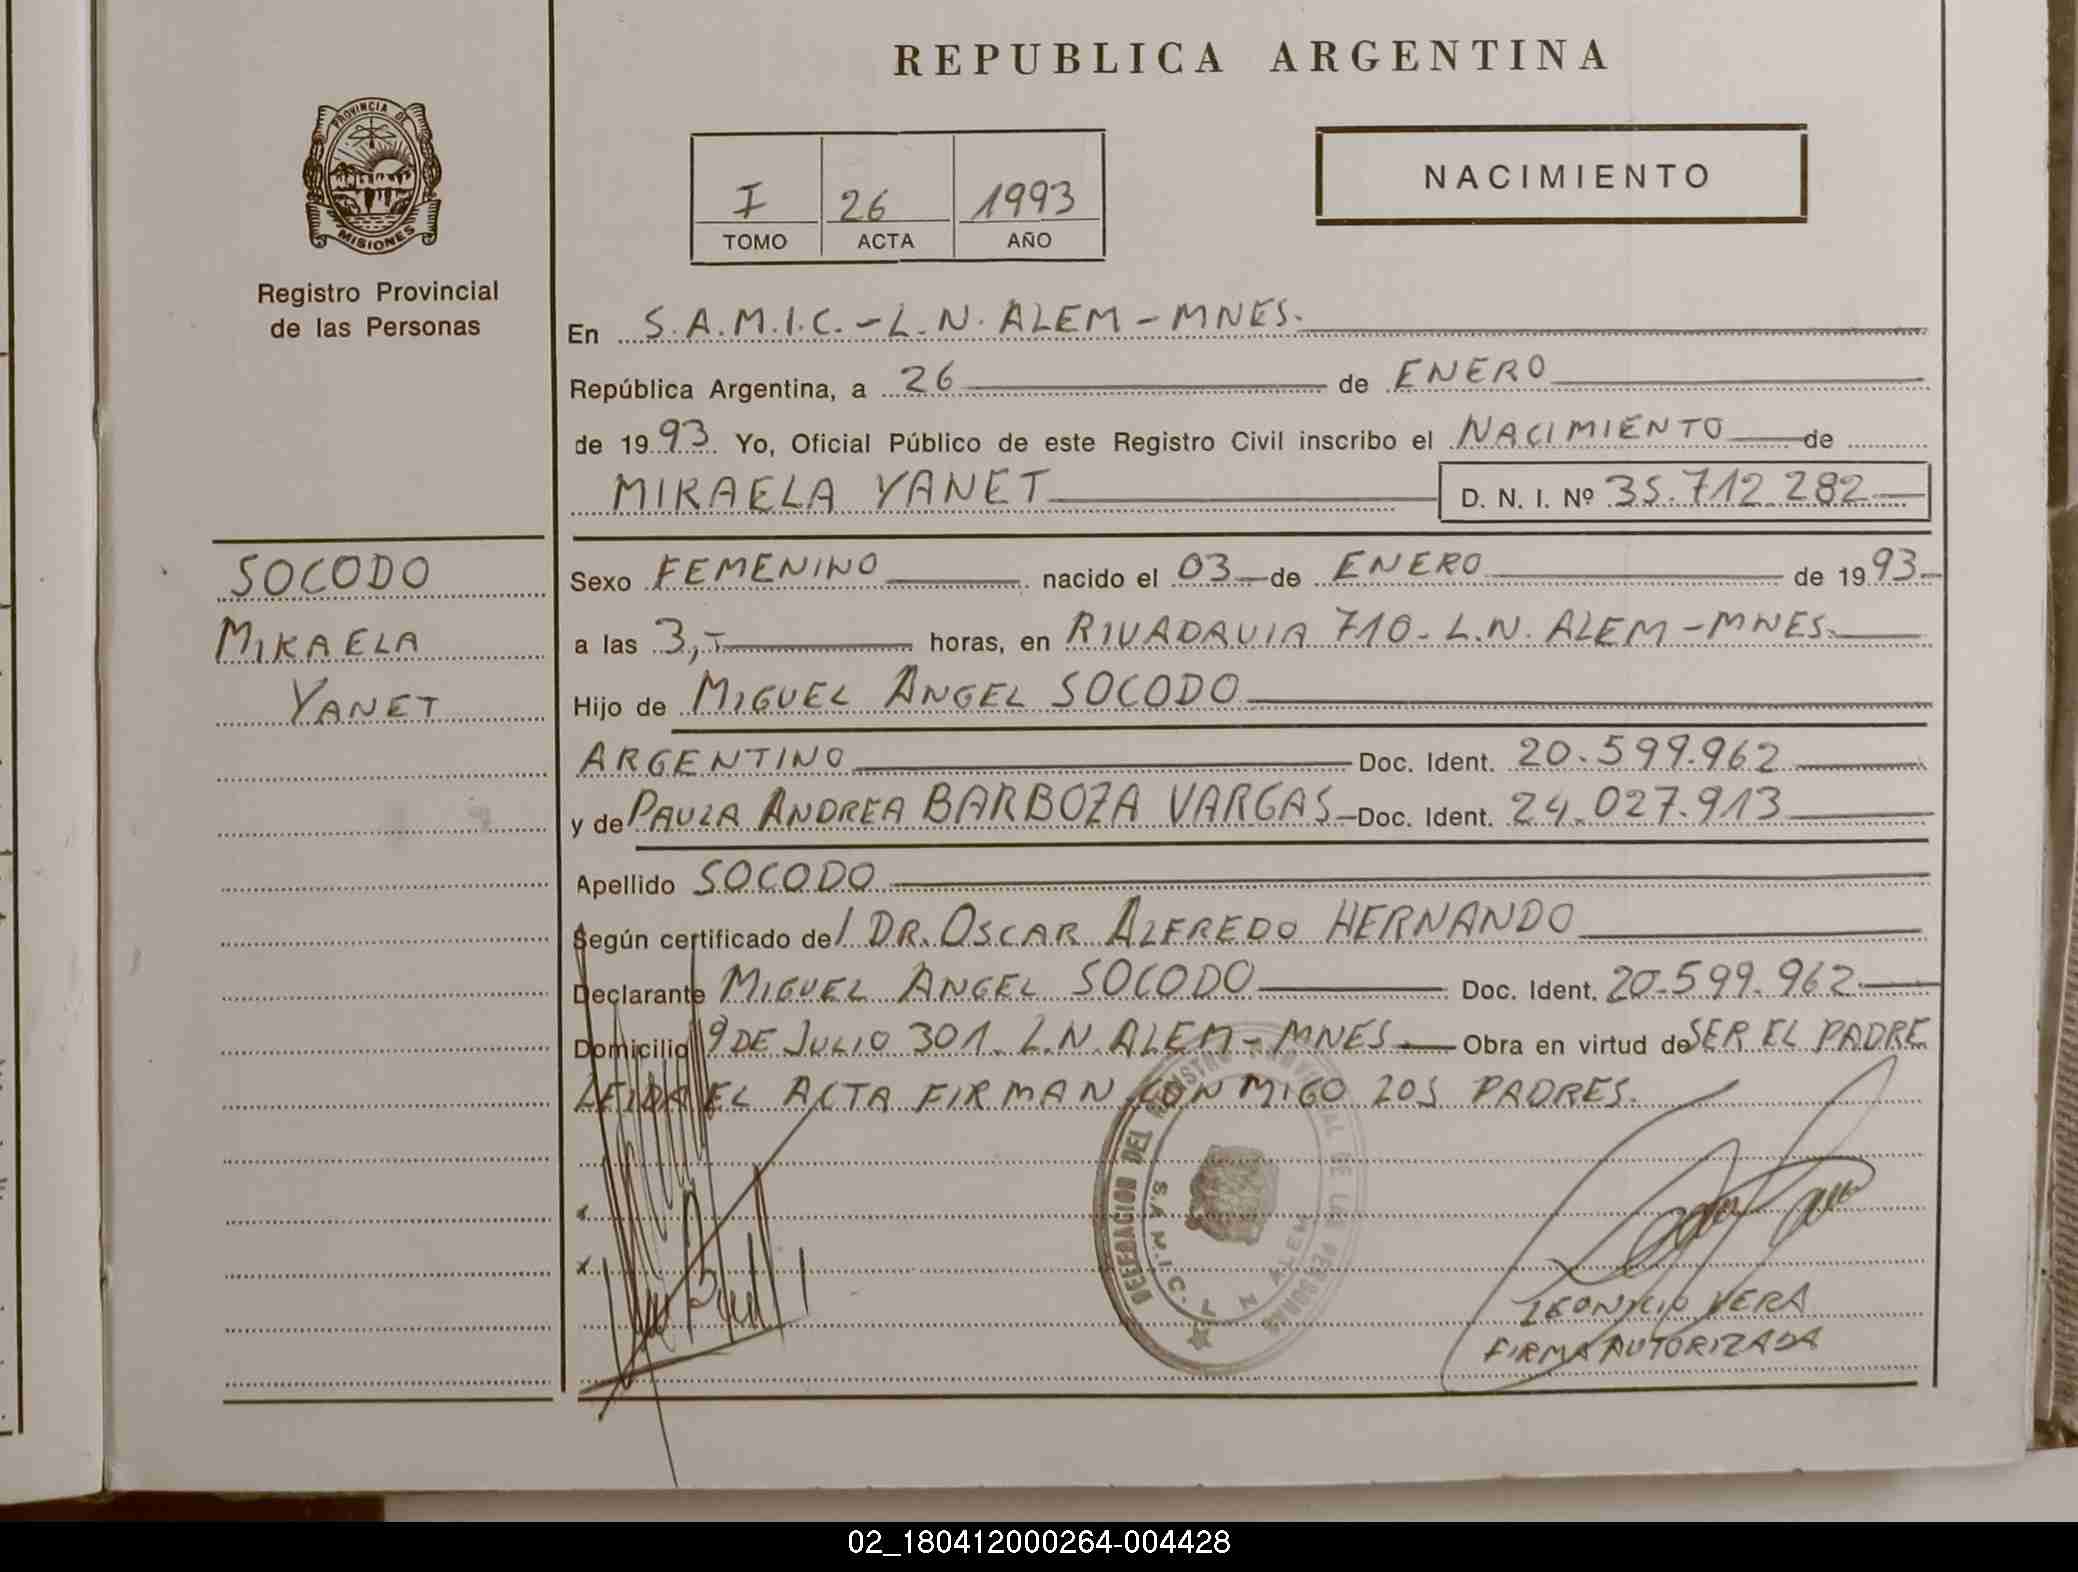 REPUBLICA ARGENTINA
PROVINCIA DE
MISIONES
Registro Provincial
de las Personas
I 26 1993
TOMO ACTA AÑO
NACIMIENTO
En S.A.M.I.C.-L.N. ALEM-MNES.
República Argentina, a 26 de ENERO
de 1993 Yo, Oficial Público de este Registro Civil inscribo el NACIMIENTO de
MIKAELA YANET D. N. I. Nº 35.712.282
SOCODO
MIKAELA
YANET
Sexo FEMENINO nacido el 03 de ENERO de 1993
a las 3,- horas, en RIVADAVIA 710-L.N. ALEM-MNES.
Hijo de MIGUEL ANGEL SOCODO
ARGENTINO Doc. Ident. 20.599.962
y de PAULA ANDREA BARBOZA VARGAS Doc. Ident. 24.027.913
Apellido SOCODO
Según certificado del DR. OSCAR ALFREDO HERNANDO
Declarante MIGUEL ANGEL SOCODO Doc. Ident. 20.599.962
Domicilio 9 DE JULIO 301. L.N. ALEM-MNES Obra en virtud de SER EL PADRE
LEIDA EL ACTA FIRMAN CONMIGO LOS PADRES.
DELEGACION DEL REGISTRO PROVINCIAL DE LAS PERSONAS
S.A.M.I.C. L N ALEM
LEONICIO VERA
FIRMA AUTORIZADA
02_180412000264-004428